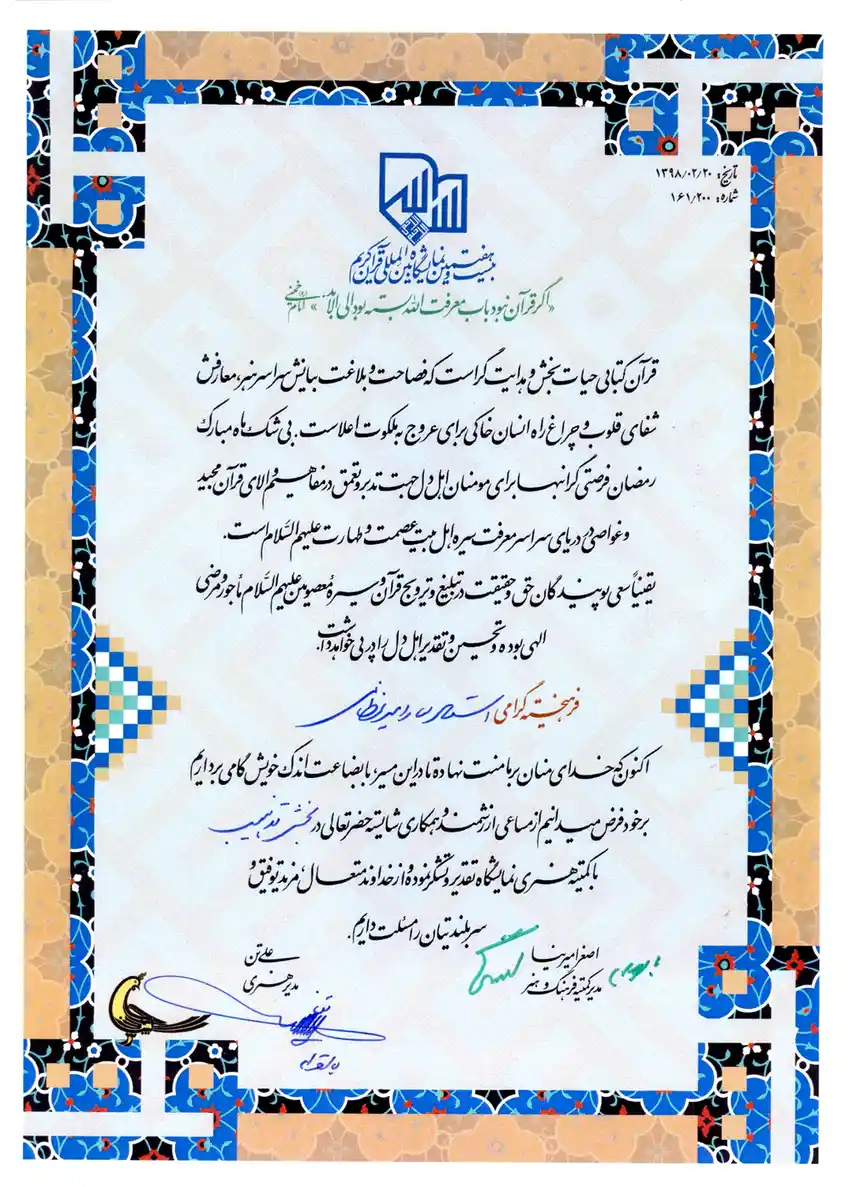 تاریخ: ۱۳۹۸/۰۲/۲۰
شماره: ۱۶۱/۲۰۰
بیست و هفتمین نمایشگاه بین المللی قرآن کریم
«اگر قرآن نبود باب معرفت الله بسته بود الی الابد.» امام خمینی (ره)
قرآن کتابی حیات بخش و هدایت گر است که فصاحت و بلاغت بیانش سراسر هنر، معارفش
شفای قلوب و چراغ راه انسان خاکی برای عروج به ملکوت اعلاست. بی شک ماه مبارک
رمضان فرصتی گرانبها برای مومنان اهل دل جهت تدبر و تعمق در مفاهیم والای قرآن مجید
و غواصی در دریای سراسر معرفت سیره اهل بیت عصمت و طهارت علیهم السَّلام است.
یقیناً سعی پویندگان حق و حقیقت در تبلیغ و ترویج قرآن و سیره معصومین علیهم السَّلام مأجور و مرضی
الهی بوده و تحسین و تقدیر اهل دل را در پی خواهد داشت.
فرهیخته گرامی استاد
اکنون که خدای منان بر ما منت نهاده تا در این مسیر، با بضاعت اندک خویش گامی برداریم
بر خود فرض میدانیم از مساعی ارزشمند و همکاری شایسته حضرتعالی در بخش تذهیب
با کمیته هنری نمایشگاه تقدیر و تشکر نموده و از خداوند متعال، مزید توفیق و
سربلندیتان را مسئلت داریم.
اصغر امیرنیا
مدیر کمیته فرهنگ و هنر
علی تن
مدیر هنری